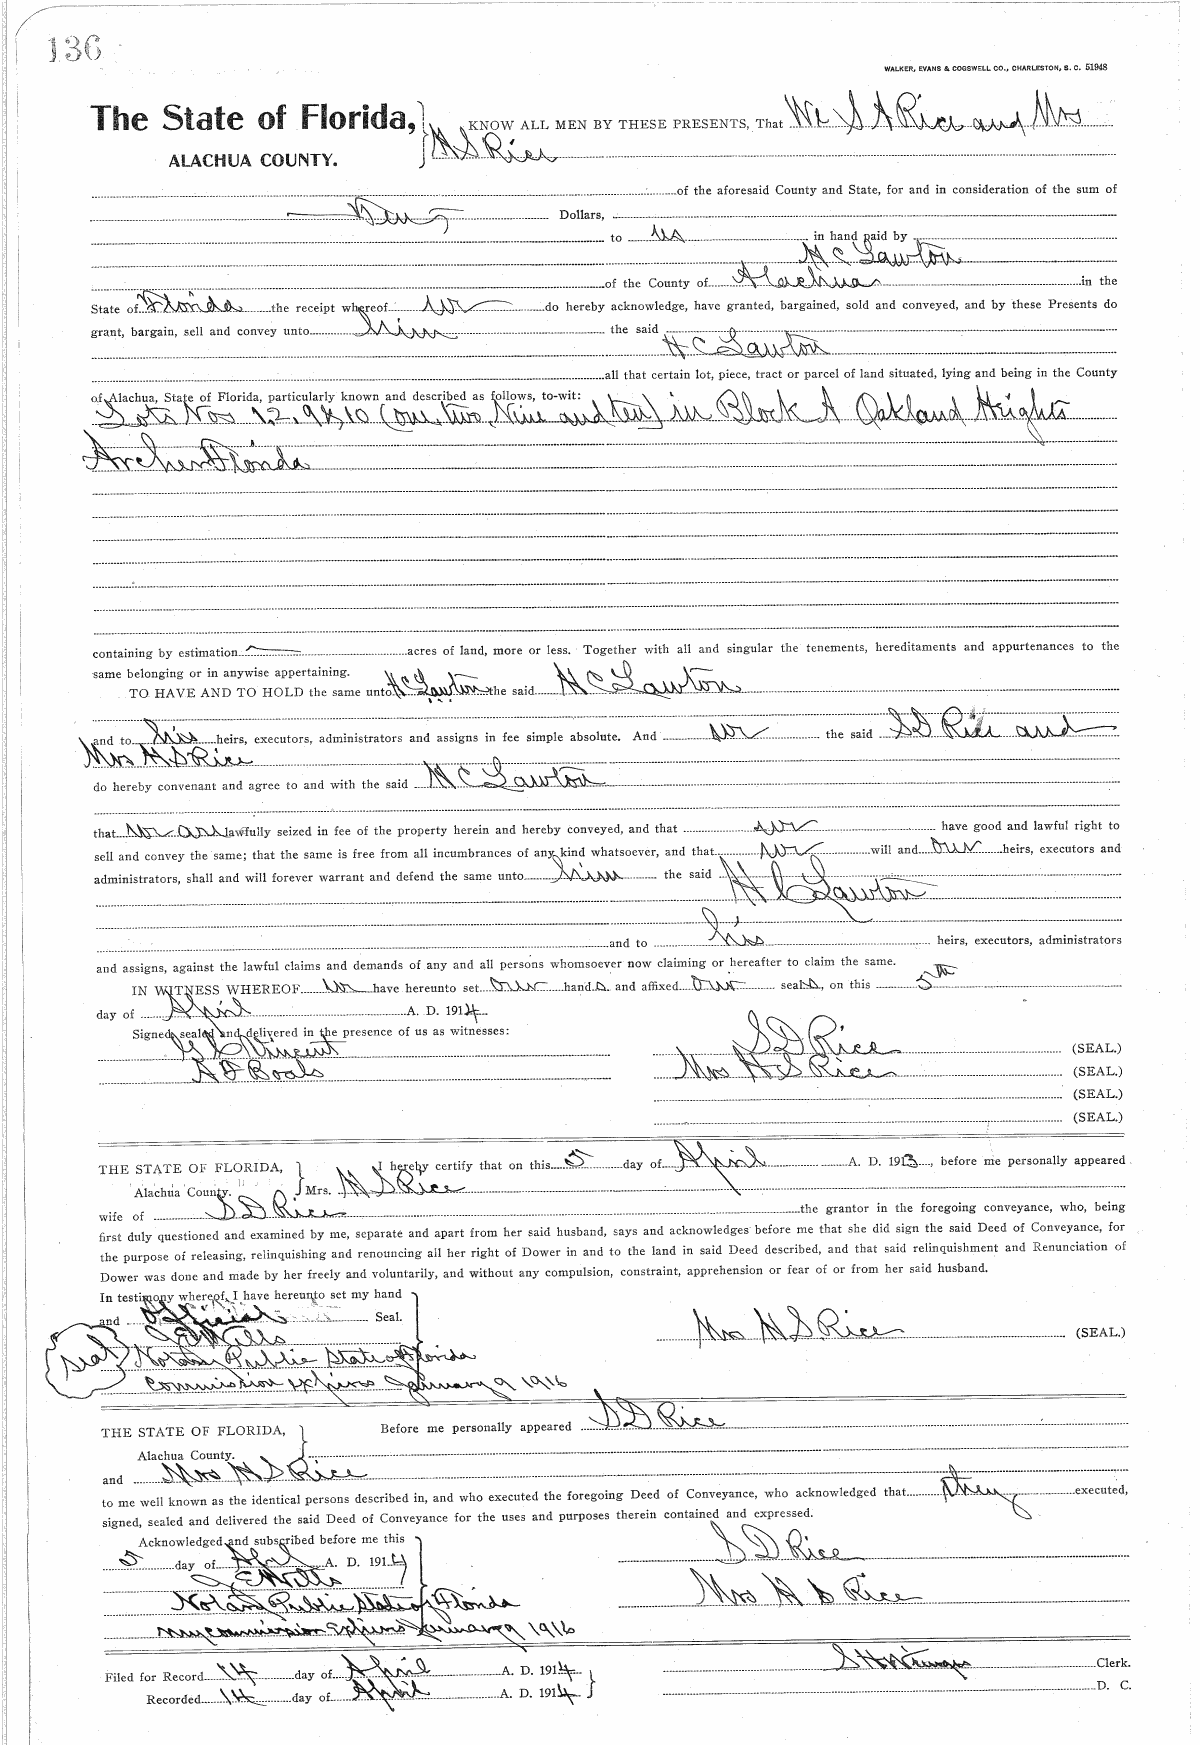 136
WALKER, EVANS & COGSWELL CO., CHARLESTON, S. C. 51948
The State of Florida, KNOW ALL MEN BY THESE PRESENTS, That We S A Rice and Mrs
ALACHUA COUNTY. H S Rice
of the aforesaid County and State, for and in consideration of the sum of
Ten Dollars,
to us in hand paid by
H C Lawton
of the County of Alachua in the
State of Florida the receipt whereof we do hereby acknowledge, have granted, bargained, sold and conveyed, and by these Presents do
grant, bargain, sell and convey unto him the said
H C Lawton
all that certain lot, piece, tract or parcel of land situated, lying and being in the County
of Alachua, State of Florida, particularly known and described as follows, to-wit:
Lots Nos 1, 2, 9 & 10 (one, two, Nine and ten) in Block A Oakland Heights
Archer Florida
containing by estimation acres of land, more or less. Together with all and singular the tenements, hereditaments and appurtenances to the
same belonging or in anywise appertaining.
TO HAVE AND TO HOLD the same unto H C Lawton the said H C Lawton
and to his heirs, executors, administrators and assigns in fee simple absolute. And we the said S D Rice and
Mrs H S Rice
do hereby convenant and agree to and with the said H C Lawton
that we are lawfully seized in fee of the property herein and hereby conveyed, and that we have good and lawful right to
sell and convey the same; that the same is free from all incumbrances of any kind whatsoever, and that we will and our heirs, executors and
administrators, shall and will forever warrant and defend the same unto him the said H C Lawton
and to his heirs, executors, administrators
and assigns, against the lawful claims and demands of any and all persons whomsoever now claiming or hereafter to claim the same.
IN WITNESS WHEREOF we have hereunto set our hands and affixed our seals, on this 5th
day of April A. D. 1914
Signed, sealed and delivered in the presence of us as witnesses:
Vincent S D Rice (SEAL.)
A F Boals Mrs H S Rice (SEAL.)
(SEAL.)
(SEAL.)
THE STATE OF FLORIDA, I hereby certify that on this 5 day of April A. D. 1913, before me personally appeared
Alachua County. Mrs. H S Rice
wife of S D Rice the grantor in the foregoing conveyance, who, being
first duly questioned and examined by me, separate and apart from her said husband, says and acknowledges before me that she did sign the said Deed of Conveyance, for
the purpose of releasing, relinquishing and renouncing all her right of Dower in and to the land in said Deed described, and that said relinquishment and Renunciation of
Dower was done and made by her freely and voluntarily, and without any compulsion, constraint, apprehension or fear of or from her said husband.
In testimony whereof, I have hereunto set my hand
and Official Seal.
J E Wills Mrs H S Rice (SEAL.)
Seal Notary Public State of Florida
Commission expires January 9 1916
THE STATE OF FLORIDA, Before me personally appeared S D Rice
Alachua County.
and Mrs H S Rice
to me well known as the identical persons described in, and who executed the foregoing Deed of Conveyance, who acknowledged that they executed,
signed, sealed and delivered the said Deed of Conveyance for the uses and purposes therein contained and expressed.
Acknowledged and subscribed before me this
5 day of April A. D. 1914 S D Rice
J E Wills
Notary Public State of Florida Mrs H S Rice
my commission expires January 9 1916
Filed for Record 14 day of April A. D. 1914 Clerk.
Recorded 14 day of April A. D. 1914 D. C.